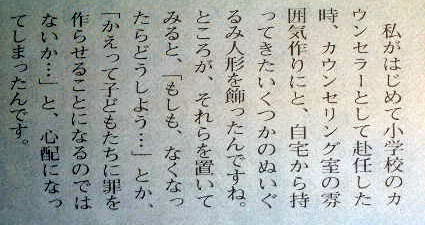 私がはじめて小学校のカ
ウンセラーとして赴任した
時、カウンセリング室の雰
囲気作りにと、自宅から持
ってきたいくつかのぬいぐ
るみ人形を飾ったんですね。
ところが、それらを置いて
みると、「もしも、なくなっ
たらどうしよう…」とか、
「かえって子どもたちに罪を
作らせることになるのでは
ないか…」と、心配になっ
てしまったんです。